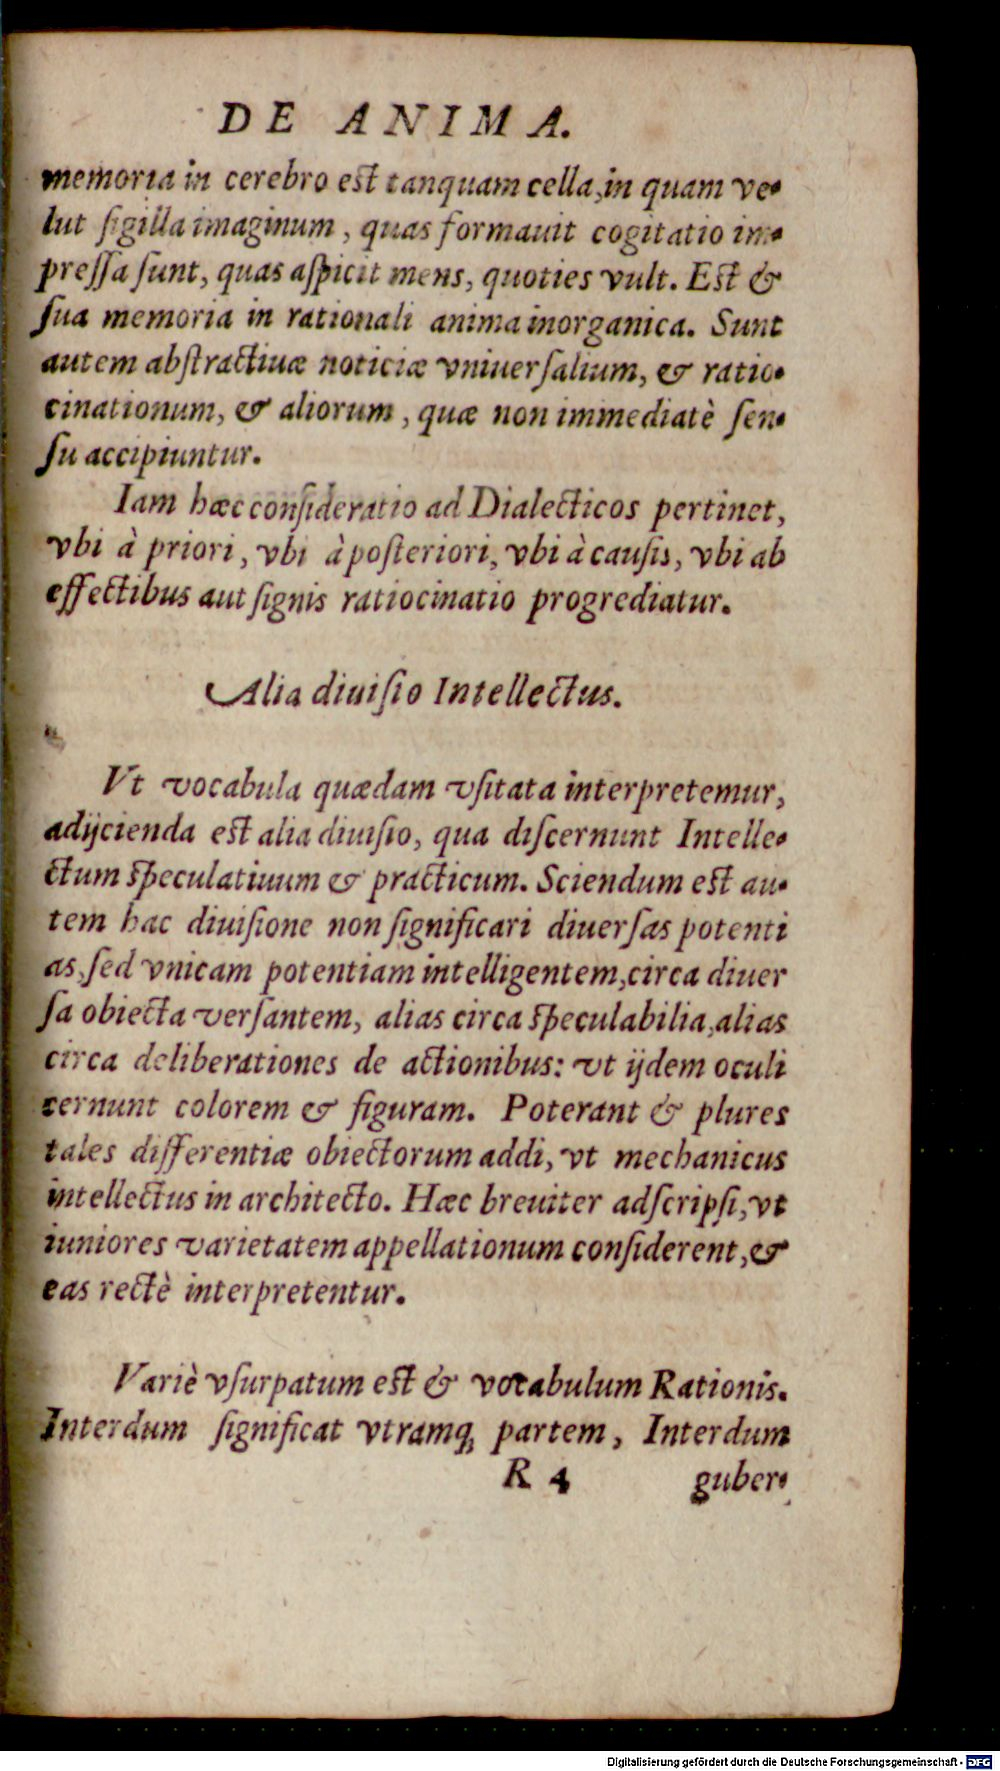 DE ANIMA.
memoria in cerebro est tanquam cella, in quam ve-
lut ſigilla imaginum, quas formauit cogitatio im-
preſſa ſunt, quas aſpicit mens, quoties vult. Est &
ſua memoria in rationali anima inorganica. Sunt
autem abſtractiuæ noticiæ vniuerſalium, & ratio-
cinationum, & aliorum, quæ non immediatè ſen-
ſu accipiuntur.
Iam hæc conſideratio ad Dialecticos pertinet,
vbi à priori, vbi à poſteriori, vbi à cauſis, vbi ab
effectibus aut ſignis ratiocinatio progrediatur.
Alia diuiſio Intellectus.
Vt vocabula quædam vſitata interpretemur,
adijcienda est alia diuiſio, qua diſcernunt Intelle-
ctum ſpeculatiuum & practicum. Sciendum est au-
tem hac diuiſione non ſignificari diuerſas potenti
as, ſed vnicam potentiam intelligentem, circa diuer
ſa obiecta verſantem, alias circa ſpeculabilia, alias
circa deliberationes de actionibus: vt ijdem oculi
cernunt colorem & figuram. Poterant & plures
tales differentiæ obiectorum addi, vt mechanicus
intellectus in architecto. Hæc breuiter adſcripſi, vt
iuniores varietatem appellationum conſiderent, &
eas rectè interpretentur.
Variè vſurpatum est & vocabulum Rationis.
Interdum ſignificat vtramq; partem, Interdum
R 4 guber-
Digitalisierung gefördert durch die Deutsche Forschungsgemeinschaft - DFG